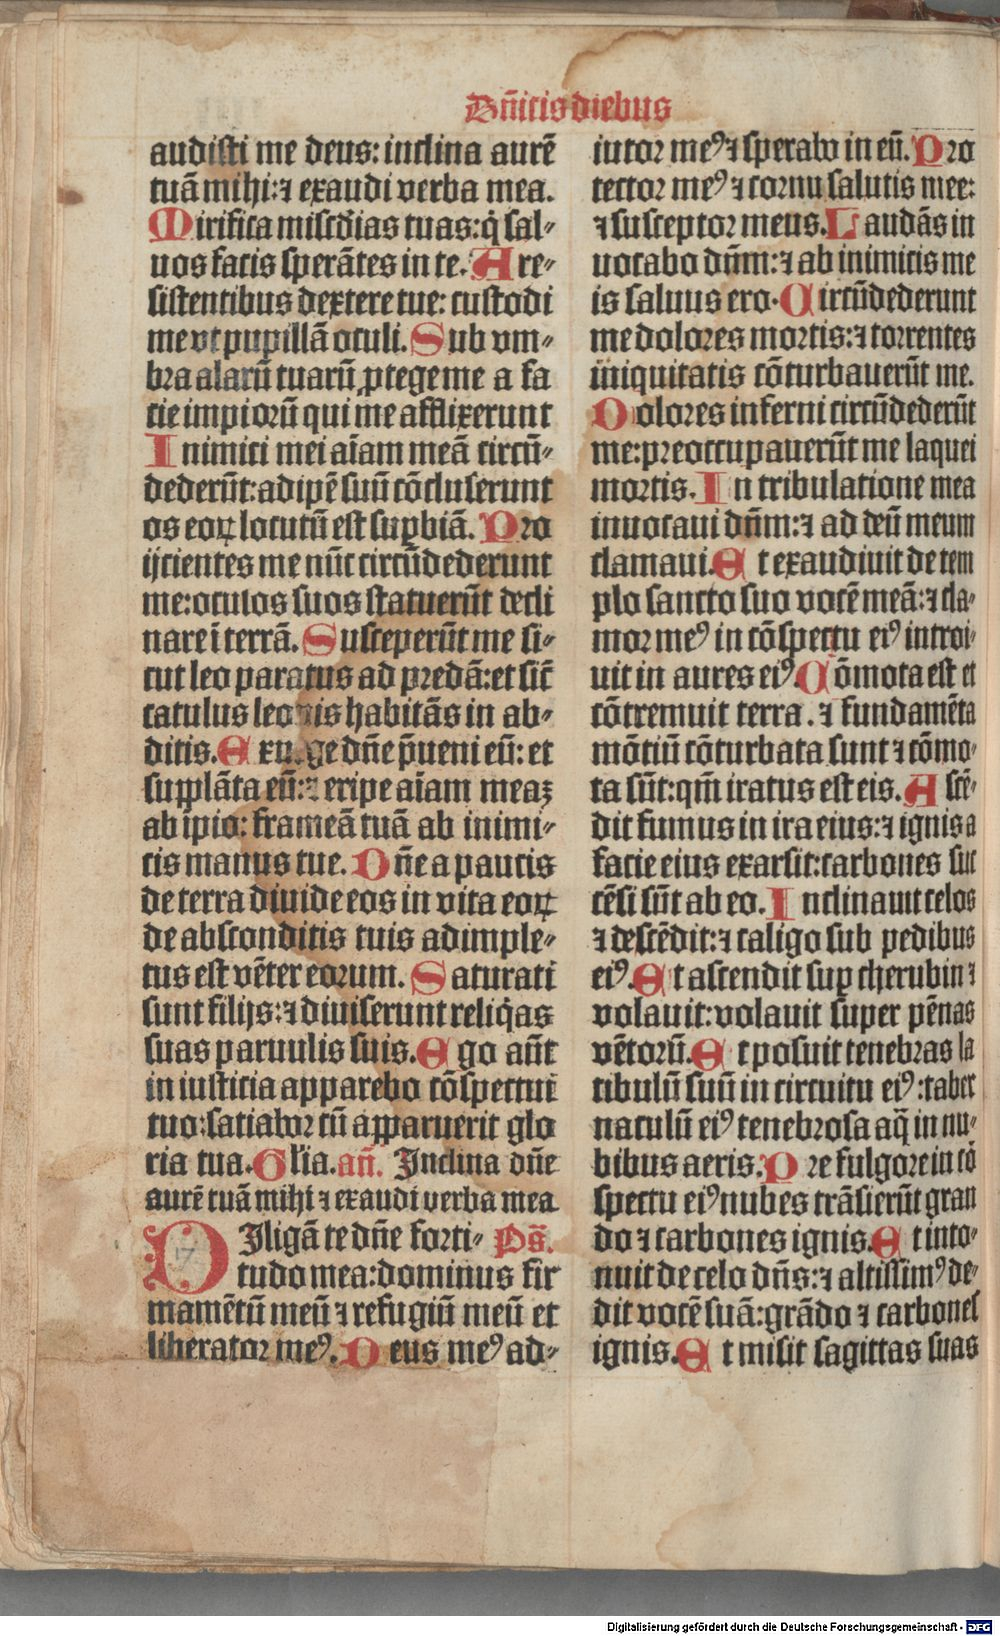 Dn̄icis diebus
audisti me deus: inclina aurē
tuā mihi: ⁊ exaudi verba mea.
Mirifica misc̄dias tuas: q̇ sal⸗
uos facis sperātes in te. A re⸗
sistentibus dextere tue: custodi
me vt pupillā oculi. Sub vm⸗
bra alarū tuarū ꝓtege me a fa
cie impiorū qui me afflixerunt
Inimici mei aīam meā circū⸗
dederūt: adipē suū cōcluserunt
os eoꝝ locutū est suꝑbiā. Pro
ijcientes me nūc circūdederunt
me: oculos suos statuerūt decli
nare ī terrā. Susceperūt me si⸗
cut leo paratus ad predā: et sic̄
catulus leonis habitās in ab⸗
ditis. Exurge dn̄e p̄ueni eū: et
supplāta eū: ⁊ eripe aīam meaꝫ
ab īpio: frameā tuā ab inimi⸗
cis manus tue. Dn̄e a paucis
de terra diuide eos in vita eoꝝ
de absconditis tuis adimple⸗
tus est vēter eorum. Saturati
sunt filijs: ⁊ diuiserunt reliq̇as
suas paruulis suis. Ego aūt
in iusticia apparebo cōspectui
tuo: satiabor cū apparuerit glo
ria tua. Gl'ia. an̄. Inclina dn̄e
aurē tuā mihi ⁊ exaudi verba mea
DIligā te dn̄e forti⸗ Ps̄.
tudo mea: dominus fir
mamētū meū ⁊ refugiū meū et
liberator meꝰ. Deus meꝰ ad⸗
iutor meꝰ ⁊ sperabo in eū. Pro
tector meꝰ ⁊ cornu salutis mee:
⁊ susceptor meus. Laudās in
uocabo dn̄m: ⁊ ab inimicis me
is saluus ero. Circūdederunt
me dolores mortis: ⁊ torrentes
iniquitatis cōturbauerūt me.
Dolores inferni circūdederūt
me: preoccupauerūt me laquei
mortis. In tribulatione mea
inuocaui dn̄m: ⁊ ad deū meum
clamaui. Et exaudiuit de tem
plo sancto suo vocē meā: ⁊ cla⸗
mor meꝰ in cōspectu eiꝰ introi⸗
uit in aures eiꝰ. Cōmota est et
cōtremuit terra. ⁊ fundamēta
mōtiū cōturbata sunt ⁊ cōmo⸗
ta sūt: qm̄ iratus est eis. Ascē⸗
dit fumus in ira eius: ⁊ ignis a
facie eius exarsit: carbones suc
cēsi sūt ab eo. Inclinauit celos
⁊ descēdit: ⁊ caligo sub pedibus
eiꝰ. Et ascendit suꝑ cherubin ⁊
volauit: volauit super pēnas
vētorū. Et posuit tenebras la
tibulū suū in circuitu eiꝰ: taber
naculū eiꝰ tenebrosa aq̄ in nu⸗
bibus aeris. Pre fulgore in cō
spectu eiꝰ nubes trāsierūt gran
do ⁊ carbones ignis. Et into⸗
nuit de celo dn̄s: ⁊ altissimꝰ de⸗
dit vocē suā: grādo ⁊ carbones
ignis. Et misit sagittas suas
Digitalisierung gefördert durch die Deutsche Forschungsgemeinschaft - DFG